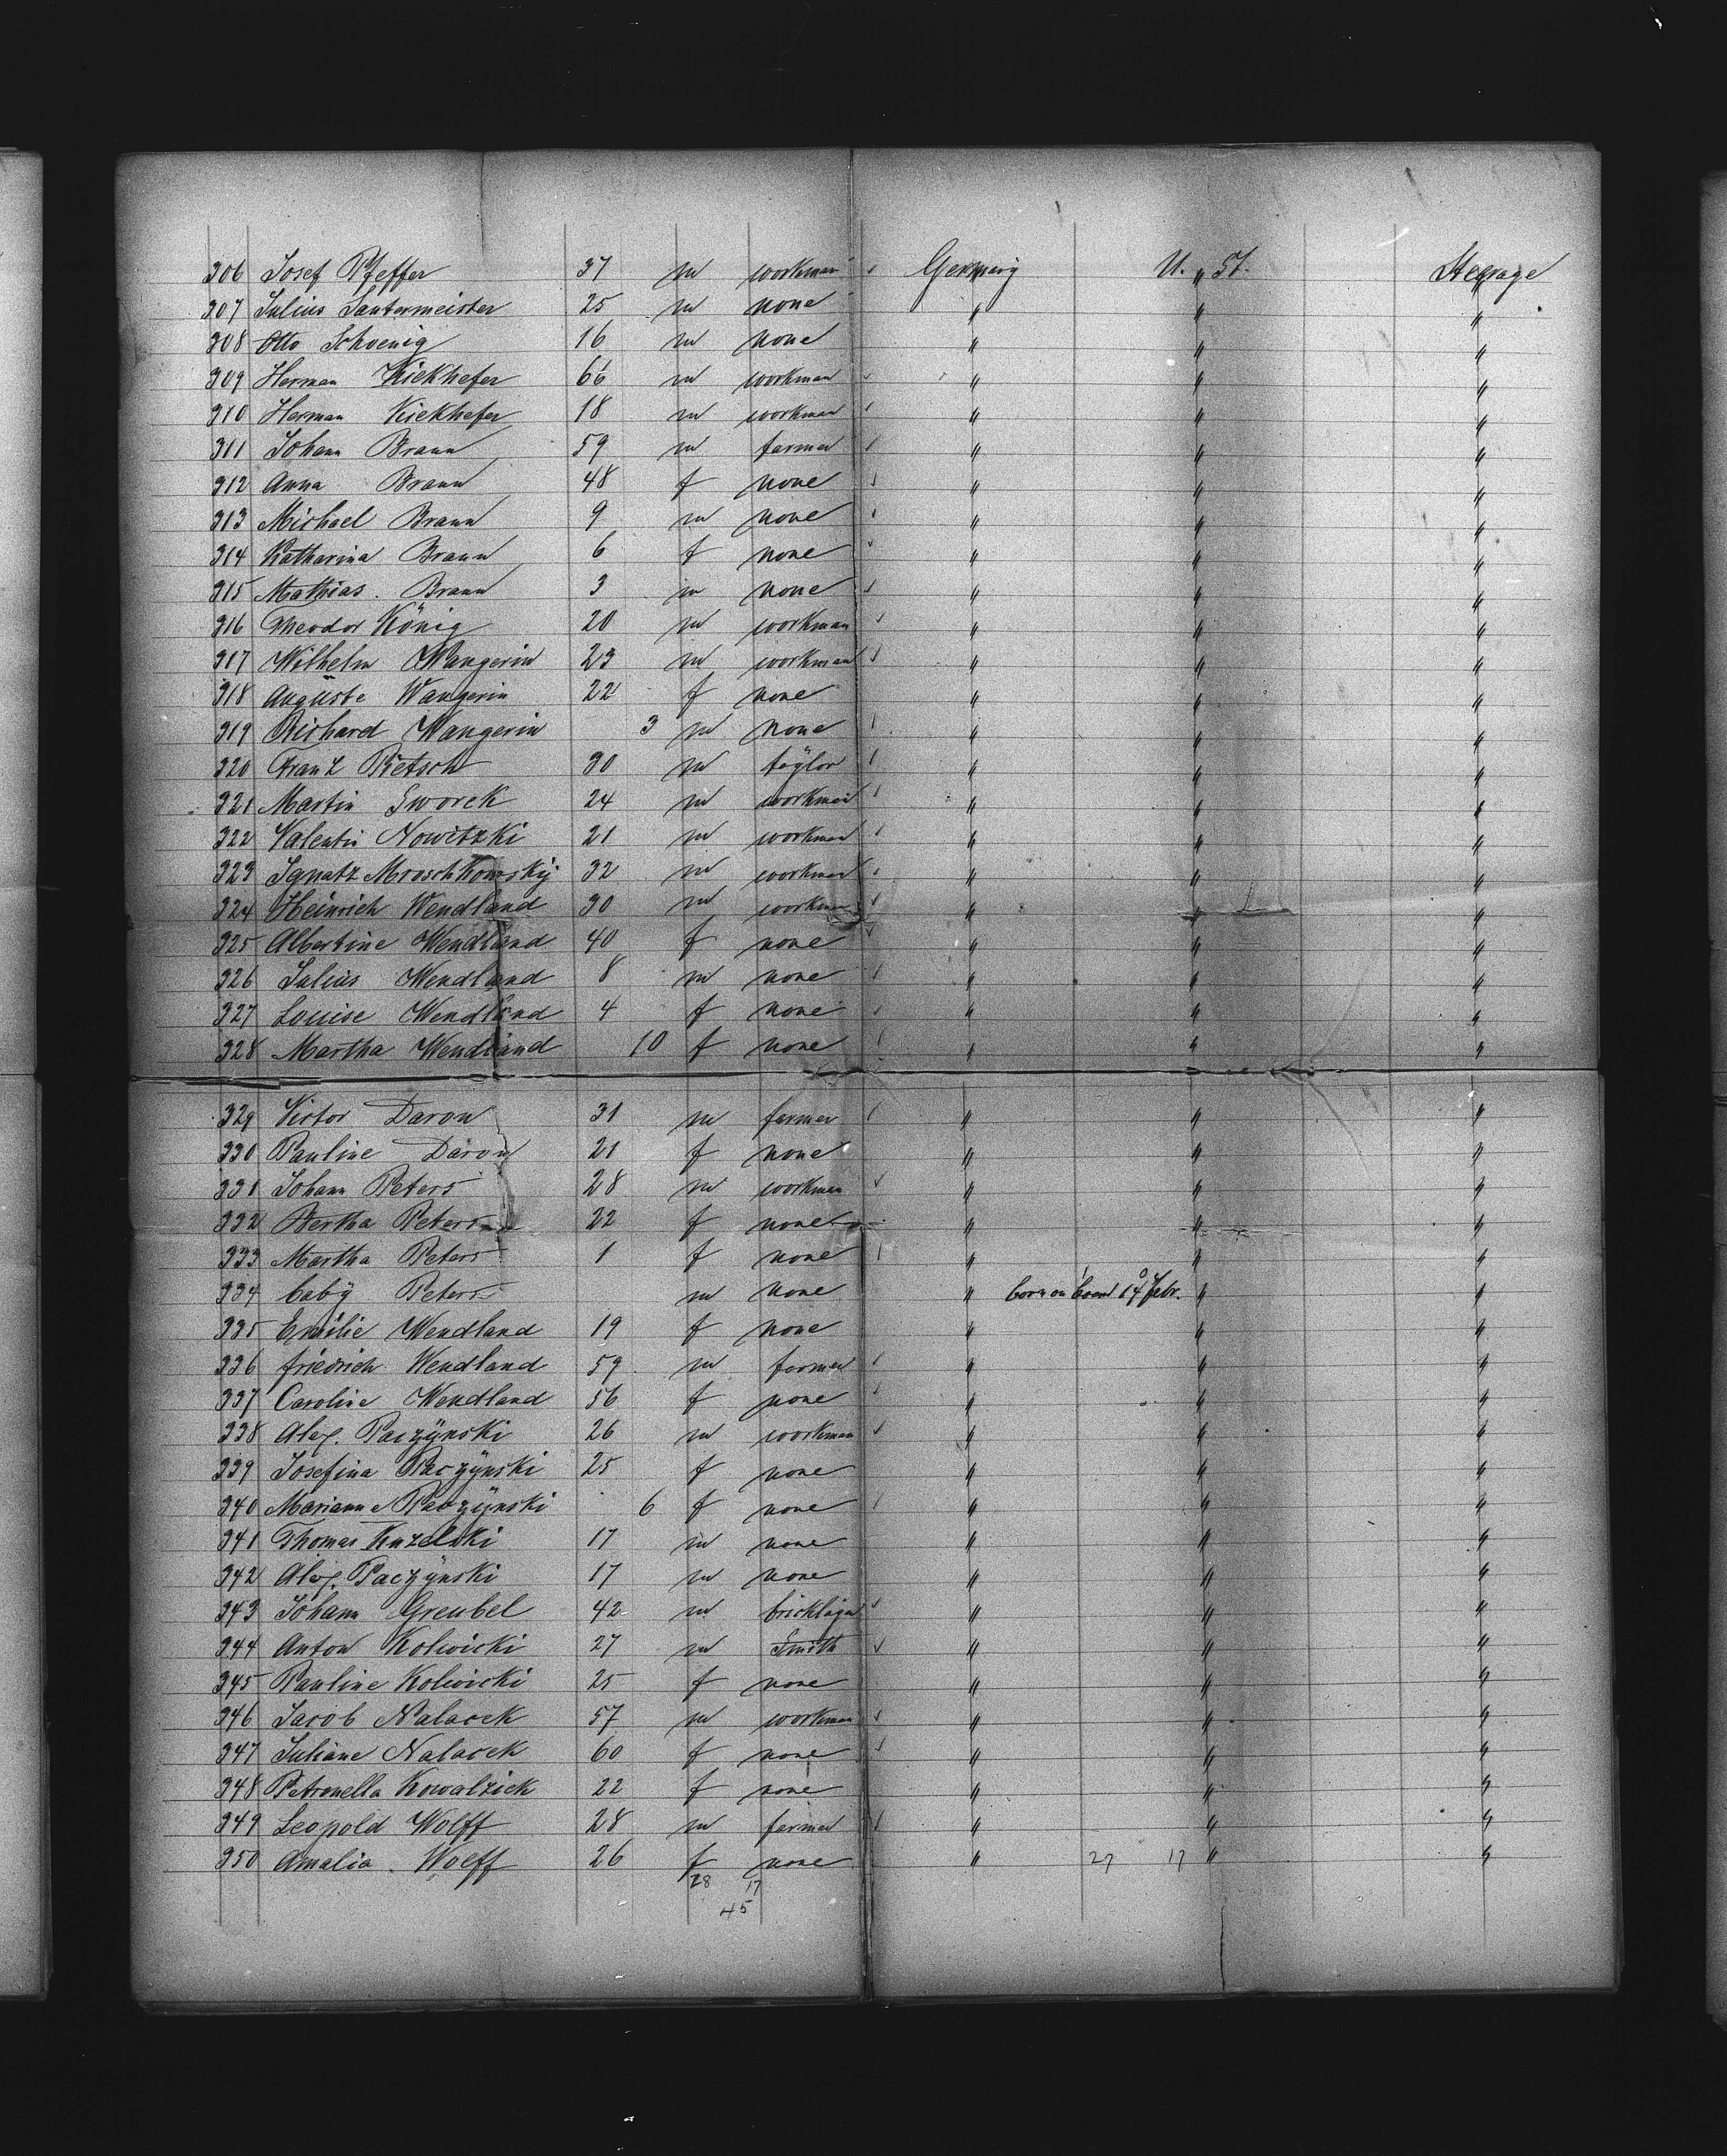 306 Josef Pfeffer 37 m workman Germany U. " St. Steerage
307 Julius Sautermeister 25 m none " " "
308 Otto Schoenig 16 m none " " "
309 Herman Kiekhefer 66 m workman " " "
310 Herman Kiekhefer 18 m workman " " "
311 Johann Braun 59 m farmer " " "
312 Anna Braun 48 f none " " "
313 Michael Braun 9 m none " " "
314 Katharina Braun 6 f none " " "
315 Mathias Braun 3 m none " " "
316 Theodor König 20 m workman " " "
317 Wilhelm Wangerin 23 m workman " " "
318 Auguste Wangerin 22 f none " " "
319 Richard Wangerin 3 m none " " "
320 Franz Pietsch 30 m taÿlor " " "
321 Martin Sworek 24 m workman " " "
322 Valentin Nowitzki 21 m workman " " "
323 Ignatz Moroschkowskÿ 32 m workman " " "
324 Heinrich Wendland 30 m workman " " "
325 Albertine Wendland 40 f none " " "
326 Julius Wendland 8 m none " " "
327 Louise Wendland 4 f none " " "
328 Martha Wendland 10 f none " " "
329 Victor Daron 31 m farmer " " "
330 Pauline Daron 21 f none " " "
331 Johann Peters 28 m workman " " "
332 Bertha Peters 22 f none " " "
333 Martha Peters 1 f none " " "
334 babÿ Peters m none " born on board 14 Febr. " "
335 Emilie Wendland 19 f none " " "
336 friedrich Wendland 59 m farmer " " "
337 Caroline Wendland 56 f none " " "
338 Alex. Paczÿnski 26 m workman " " "
339 Josefina Paczÿnski 25 f none " " "
340 Marianne Paczÿnski 6 f none " " "
341 Thomas Kuzelski 17 m none " " "
342 Alex. Paczÿnski 17 m none " " "
343 Johann Greubel 42 m " " "
344 Anton Kolwicki 27 m Smith " " "
345 Pauline Kolwicki 25 f none " " "
346 Jacob Nalacek 57 m workman " " "
347 Juliane Nalacek 60 f none " " "
348 Petronella Kowalzick 22 f none " " "
349 Leopold Wolff 28 m farmer " " "
350 Amalia Wolff 26 f none " 27 17 " "
28 17
45